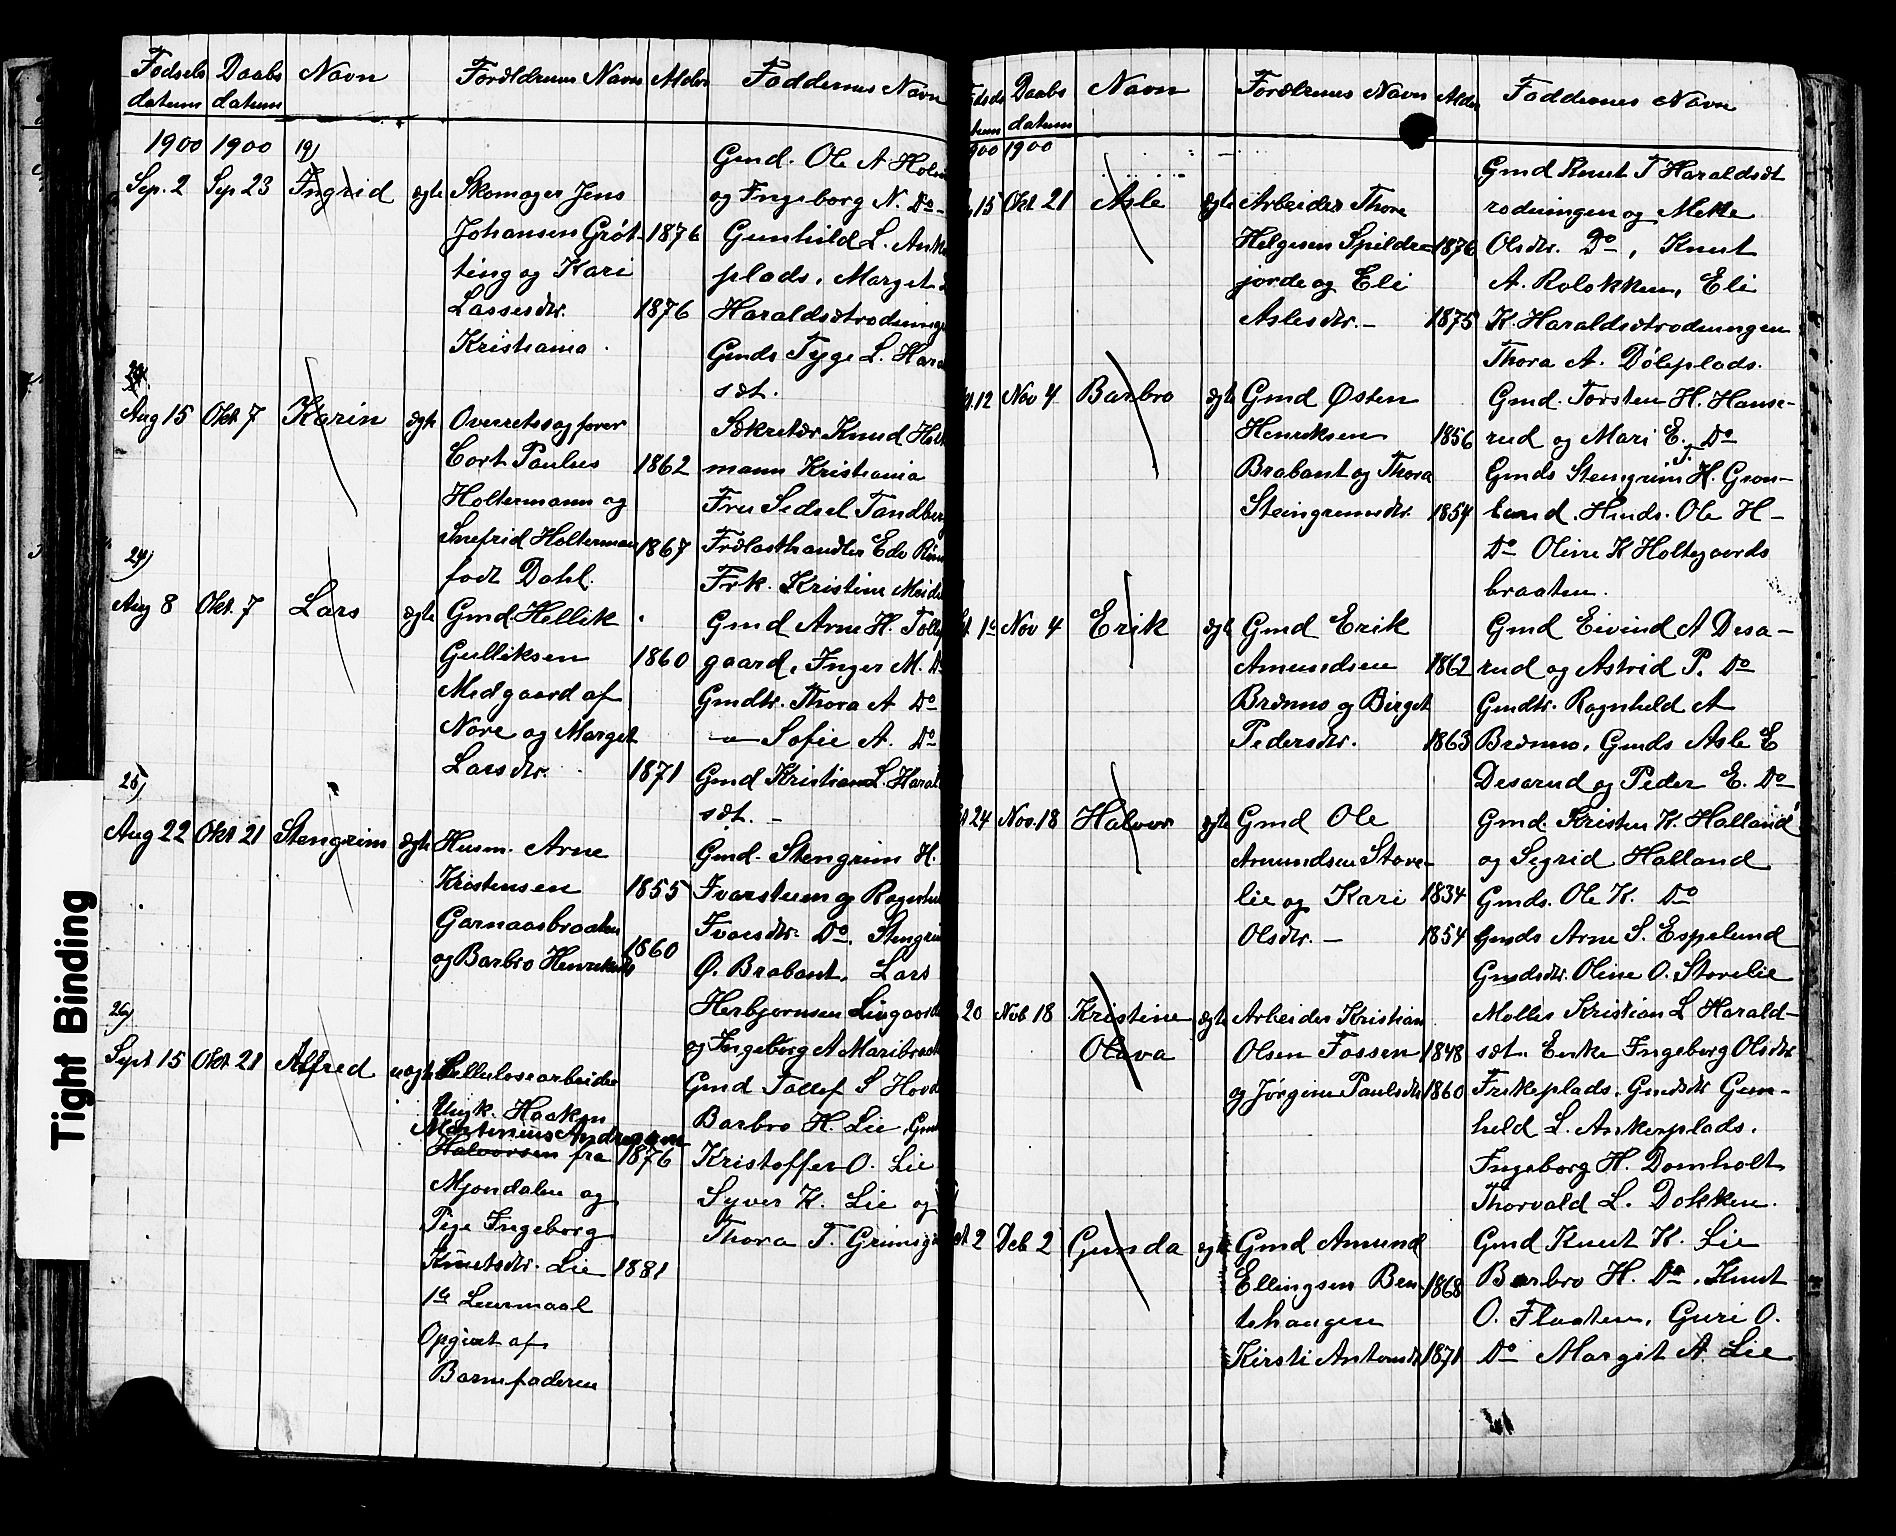 Fødsels Daabs Navn Forældrenes Navn Alder Faddernes Navn
datum datum
1900 1900 19)
Sep. 2 Sep 23 Ingrid ægte Skomager Jens
Johansen Grøt- 1876
ting og Kari
Lassesdtr. 1876
Kristiania.
Gmd. Ole A
og Ingeborg N. Do
Gunhild L.
plads, Marget
Haraldsætrodningen
Gmds Tyge L.
sæt.
Aug 15 Okt 7 Karin ægte Overretssagfører
Cort Paulus 1862
Holtermann og
Snefrid Holterman 1867
født Dahl.
Sekretær Knud
mann Kristiania
Fru Sidsel
Trælasthandler Edv
Frk. Kristine
24)
Aug 8 Okt. 7 Lars ægte Gmd Hellik
Gulliksen 1860
Medgaard af
Nore og Marget
Larsdtr. 1871
Gmd Arne H.
gaard, Inger M. Do
Gmdtr. Thora A Do
" Sofie A. Do
Gmd Kristian L.
sæt.
25)
Aug 22 Okt 21 Stengrim ægte Husm. Arne
Kristensen 1855
Garnaasbraaten
og Barbro 1860
Gmd. Stengrim H.
Ivarstuen og
Ivarsdtr. Do.
Ø. Brabant, Lars
Herbjørnsen
og Ingeborg A
26)
Sept 15 Okt 21 Alfred uægte Cellulosearbeider
Ungk. Haaken
Martinius Andersen
Halvorsen fra 1876
Mjøndalen og
Pige Ingeborg
Knutsdtr. Lie 1881
1ste Leiermaal
Opgivet af
Barnefaderen
Gmd Tollef S
Barbro H. Lie,
Kristoffer O. Lie
Syver K. Lie og
Thora T.
Daabs Navn Forældrenes Navn Alder Faddernes Navn
datum
1900
15 Okt 21 Asle ægte Arbeider Thore
Helgesen Spilde- 1876
jorde og Eli
Aslesdtr. 1875
Gmd Knut T Haraldsæt
rodningen og Mette
Olsdtr. Do, Knut
A. Roløkken, Eli
K. Haraldsætrodningen
Thora A. Døleplads.
12 Nov 4 Barbro ægte Gmd Østen
Henriksen 1856
Brabant og Thora
Steingrimsdtr. 1854
Gmd. Torsten H. Hanse-
rud og Mari E. Do
Gmds Stengrim H. Grøn-
lund. Hmds. Ole H
Do Oline K Holtegaards
braaten.
Nov 4 Erik ægte Gmd Erik
Amundsen 1862
Brænno og Birget
Pedersdtr. 1863
Gmd Eivind A Desa-
rud og Astrid P. Do
Gmdtr. Ragnhild A
Brænno, Gmds Asle E
Desarud og Peder E. Do
24 Nov. 18 Halvor ægte Gmd Ole
Amundsen Store-
lie og Kari 1834
Olsdtr. 1854
Gmd. Kristen K. Halland
og Sigrid Halland
Gmds. Ole K. Do
Gmds Arne S. Espelund
Gmdsdtr. Oline O. Storelie
20 Nov 18 Kristine ægte Arbeider Kristian
Olava Olsen Fossen 1848
og Jørgine Paulsdtr 1860
Møller Kristian L Harald-
sæt. Enke Ingeborg Olsdtr
Frikeplads, Gmdsdtr Gun-
hild L. Ankerplads.
Ingeborg H. Domholt
Thorvald L. Dokken.
2 Deb 2 Gunda ægte Gmd Amund
Ellingsen Ben- 1868
tehaugen
Kirsti Antonsdtr 1871
Gmd Knut K. Lie
Barbro H. Do. Knut
O. Flaaten, Guri O.
Do Margit A. Lie
Tight Binding